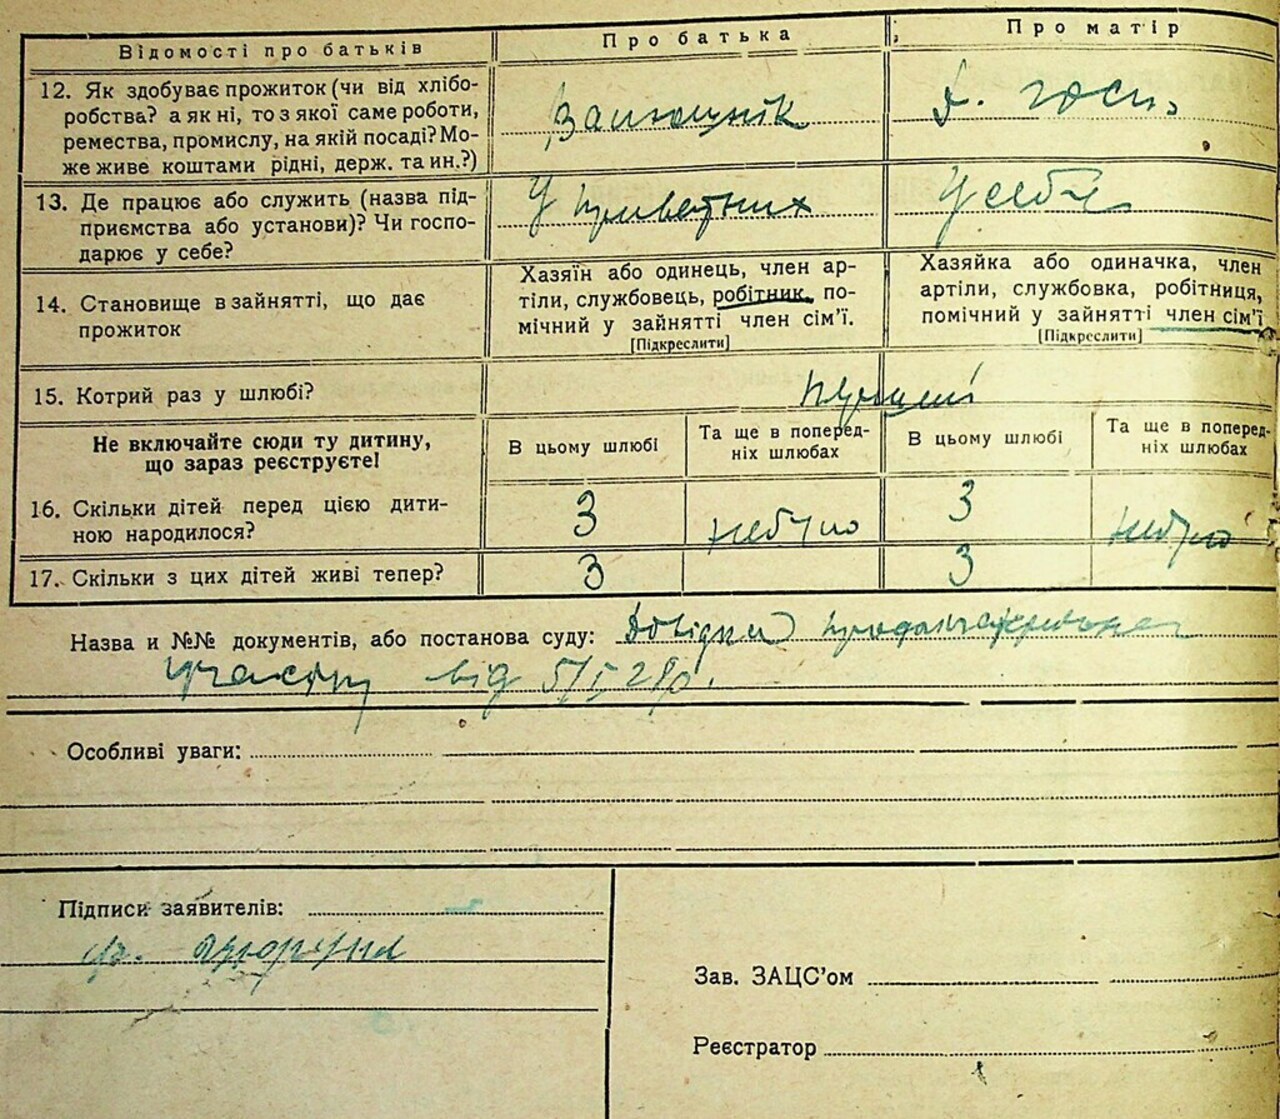 Відомості про батьків
Про батька
Про матір
12. Як здобуває прожиток (чи від хлібо-
робства? а як ні, то з якої саме роботи,
ремества, промислу, на якій посаді? Мо-
же живе коштами рідні, держ. та ин.?)
Д. госп.
13. Де працює або служить (назва під-
приємства або установи)? Чи госпо-
дарює у себе?
У приватних
У себе
14. Становище в зайнятті, що дає
прожиток
Хазяїн або одинець, член ар-
тіли, службовець, робітник, по-
мічний у зайнятті член сім’ї.
[Підкреслити]
Хазяйка або одиначка, член
артіли, службовка, робітниця,
помічний у зайнятті член сім’ї
[Підкреслити]
15. Котрий раз у шлюбі?
Не включайте сюди ту дитину,
що зараз реєструєте!
В цьому шлюбі
Та ще в поперед-
ніх шлюбах
В цьому шлюбі
Та ще в поперед-
ніх шлюбах
16. Скільки дітей перед цією дити-
ною народилося?
3
не було
3
не було
17. Скільки з цих дітей живі тепер?
3
3
Назва и №№ документів, або постанова суду: Довідка
від 5/I 29р.
Особливі уваги:
Підписи заявителів:
Зав. ЗАЦС’ом
Реєстратор